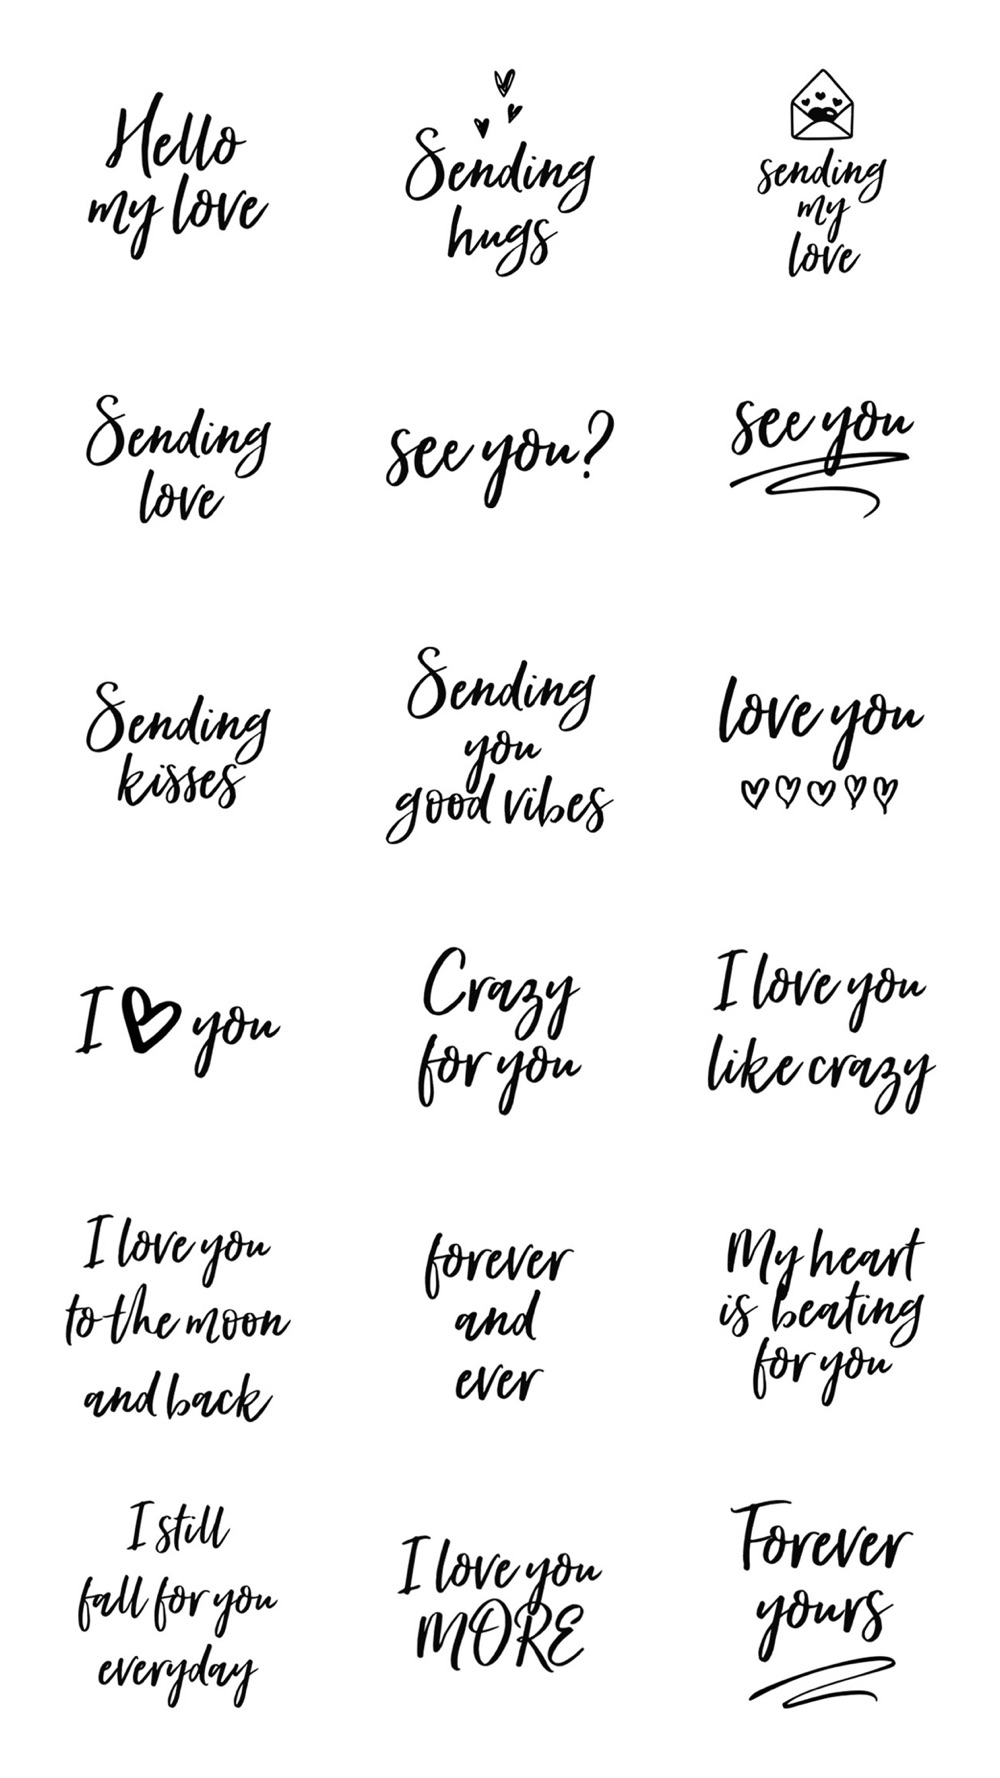 Hello
my love
Sending
hugs
sending
my
love
Sending
love
see you?
see you
Sending
kisses
Sending
you
good vibes
love you
I ♡ you
Crazy
for you
I love you
like crazy
I love you
to the moon
and back
forever
and
ever
My heart
is beating
for you
I still
fall for you
everyday
I love you
MORE
Forever
yours